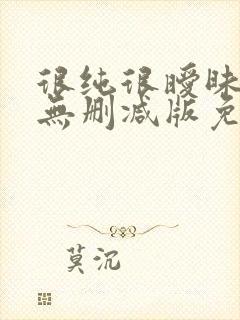 很纯很曖昧
無删减版免
莫沉